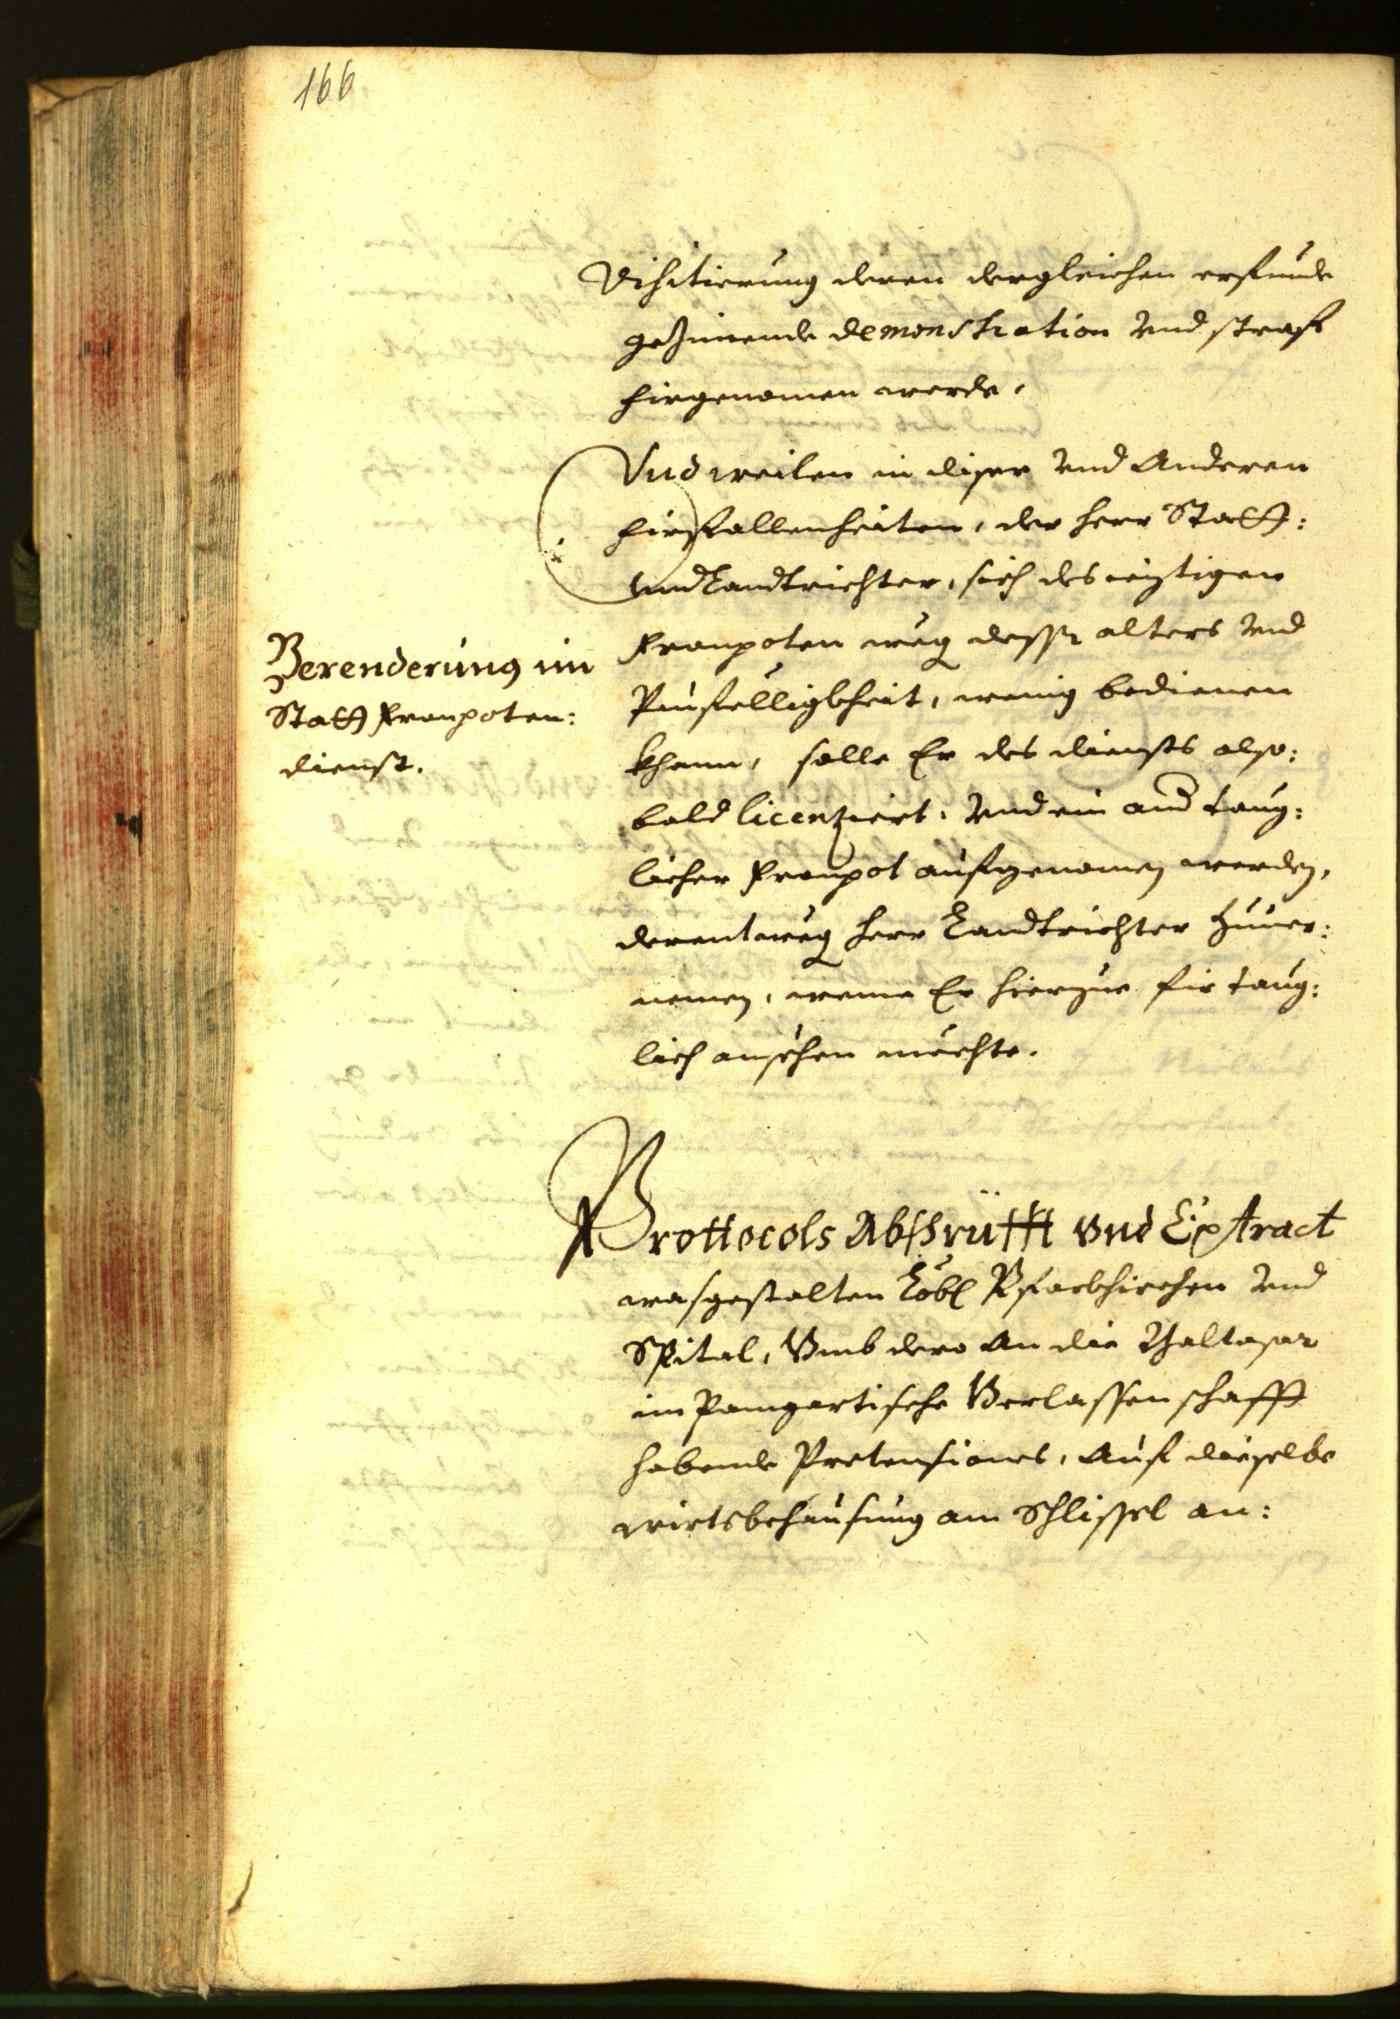 166
Visitierung deren dergleichen erfunde
gezimende demonstration Vnd straf
firgenomen werde.
Vnd weilen in diser Vnd Anderen
firfallenheiten, der herr Statt:
Vnd Landtrichter, sich des ieztigen
Fronpoten weg dessen alters Vnd
Pausölligkheit, wenig bedienen
khann, solle Er des diensts also:
bald licenziert, Vnd ein and taug:
licher Fronpot aufgenomen werden,
derentweg herr Landtrichter zuuer:
nemen, weme Er hierzue fir taug:
lich ansehen mechte.
Verenderung im
Statt Fronpoten:
dienst.
Prottocols Abschrüfft Vnd Extract
wasgestalten Löbl Pfarkhirchen Vnd
Spital, Vmb dero An die Balthasar
im Pamgartische Verlassenschafft
habende Pretensiones, Auf dieselbe
wirtsbehausung am Schlissel an: